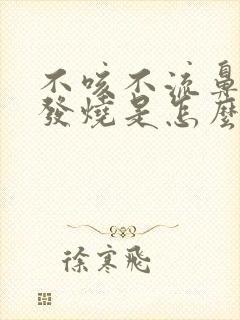 不咳不流鼻
發燒是怎麼
徐寒飛